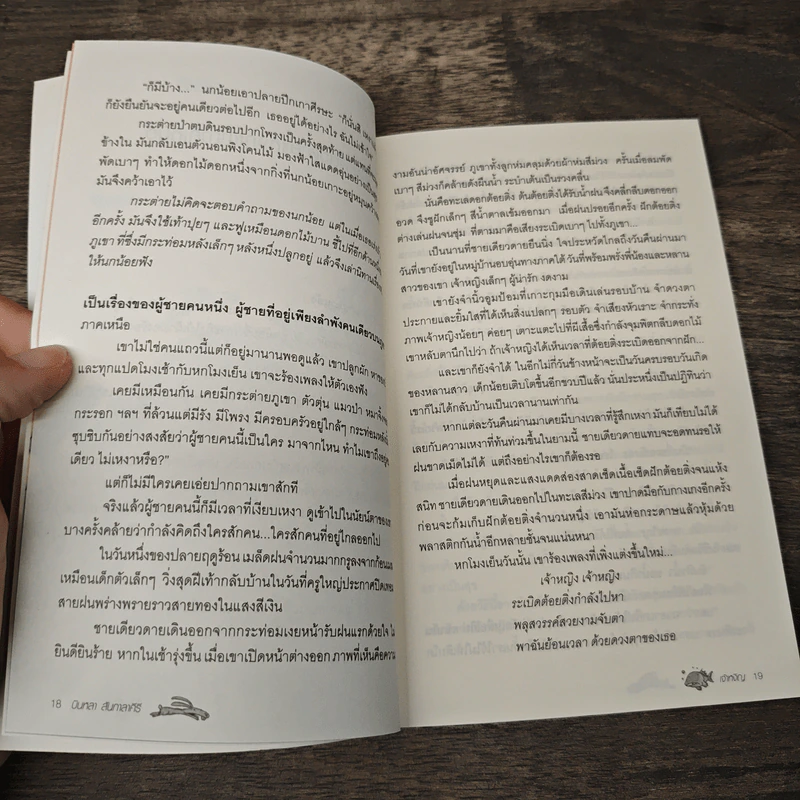 "ก็มีบ้าง..." นกน้อยเอาปลายปีกเกาศีรษะ "ก็นั่นสิ
ก็ยังยืนยันจะอยู่คนเดียวต่อไปอีก เธออยู่ได้อย่างไร ฉันไม่เข้าใจ
กระต่ายป่าตบดินรอบปากโพรงเป็นครั้งสุดท้าย
ข้างใน มันกลับเอนตัวนอนพิงโคนไม้ มองฟ้าใสแดดอุ่นอย่าง
พัดเบาๆ ทำให้ดอกไม้ดอกหนึ่งจากกิ่งที่นกน้อยเกาะอยู่
มันจึงคว้าเอาไว้
กระต่ายไม่คิดจะตอบคำถามของนกน้อย แต่ในเมื่อ
อีกครั้ง มันจึงใช้เท้าปุยๆ และฟูเหมือนดอกไม้บาน ชี้ไปที่อีกด้าน
ภูเขา ที่ซึ่งมีกระท่อมหลังเล็กๆ หลังหนึ่งปลูกอยู่ แล้วจึงเล่านิทาน
ให้นกน้อยฟัง
เป็นเรื่องของผู้ชายคนหนึ่ง ผู้ชายที่อยู่เพียงลำพังคนเดียว
ภาคเหนือ
เขาไม่ใช่คนแถวนี้แต่ก็อยู่มานานพอดูแล้ว เขาปลูกผัก
และทุกแปดโมงเช้ากับหกโมงเย็น เขาจะร้องเพลงให้ตัวเองฟัง
เคยมีเหมือนกัน เคยมีกระต่ายภูเขา ตัวตุ่น แมวป่า
กระรอก ฯลฯ ที่ล้วนแต่มีรัง มีโพรง มีครอบครัวอยู่ใกล้ๆ กระท่อม
ซุบซิบกันอย่างสงสัยว่าผู้ชายคนนี้เป็นใคร มาจากไหน ทำไมเขาถึง
เดียว ไม่เหงาหรือ?"
แต่ก็ไม่มีใครเคยเอ่ยปากถามเขาสักที
จริงแล้วผู้ชายคนนี้ก็มีเวลาที่เงียบเหงา ดูเข้าไปในนัยน์ตาของเ
บางครั้งคล้ายว่ากำลังคิดถึงใครสักคน...ใครสักคนที่อยู่ไกลออกไป
ในวันหนึ่งของปลายฤดูร้อน เมล็ดฝนจำนวนมากกรูลงจากก้อนเมฆ
เหมือนเด็กตัวเล็กๆ วิ่งสุดฝีเท้ากลับบ้านในวันที่ครูใหญ่ประกาศปิดเทอม
สายฝนพร่างพรายราวสายทองในแสงสีเงิน
ชายเดียวดายเดินออกจากกระท่อมเงยหน้ารับฝนแรกด้วยใจ
ยินดียินร้าย หากในเช้ารุ่งขึ้น เมื่อเขาเปิดหน้าต่างออก ภาพที่เห็นคือความ
18 บินหลา สันกาลาคีรี
งามอันน่าอัศจรรย์ ภูเขาทั้งลูกห่มคลุมด้วยผ้าห่มสีม่วง ครั้นเมื่อลมพัด
เบาๆ สีม่วงก็คล้ายดังผืนน้ำ ระบำเต้นเป็นรวงคลื่น
นั่นคือทะเลดอกต้อยติ่ง ต้นต้อยติ่งได้รับน้ำฝน จึงคลี่กลีบดอกออก
อวด จึงชูฝักเล็กๆ สีน้ำตาลเข้มออกมา เมื่อฝนปรอยอีกครั้ง ฝักต้อยติ่ง
ต่างเล่นฝนจนชุ่ม ที่ตามมาคือเสียงระเบิดเบาๆ ไปทั้งภูเขา...
เป็นนานที่ชายเดียวดายยืนนิ่ง ใจประหวัดไกลถึงวันคืนผ่านมา
วันที่เขายังอยู่ในหมู่บ้านอบอุ่นทางภาคใต้ วันที่พร้อมพรั่งพี่น้องและหลาน
สาวของเขา เจ้าหญิงเล็กๆ ผู้น่ารัก งดงาม
เขายังจำนิ้วอูมป้อมที่เกาะกุมมือเดินเล่นรอบบ้าน จำดวงตา
ประกายและยิ้มใสที่ได้เห็นสิ่งแปลกๆ รอบตัว จำเสียงหัวเราะ จำกระทั่ง
ภาพเจ้าหญิงน้อยๆ ค่อยๆ เตาะแตะไปที่ผีเสื้อซึ่งกำลังจุมพิตกลีบดอกไม้
เขาหลับตานึกไปว่า ถ้าเจ้าหญิงได้เห็นเวลาที่ต้อยติ่งระเบิดออกจากฝัก...
และเขาก็ยังจำได้ ในอีกไม่กี่วันข้างหน้าจะเป็นวันครบรอบวันเกิด
ของหลานสาว เด็กน้อยเติบโตขึ้นอีกขวบปีแล้ว นั่นประหนึ่งเป็นปฏิทินว่า
เขาก็ไม่ได้กลับบ้านเป็นเวลานานเท่ากัน
หากแต่ละวันคืนผ่านมาเคยมีบางเวลาที่รู้สึกเหงา มันก็เทียบไม่ได้
เลยกับความเหงาที่ท้นท่วมขึ้นในยามนี้ ชายเดียวดายแทบจะอดทนรอให้
ฝนขาดเม็ดไม่ได้ แต่ถึงอย่างไรเขาก็ต้องรอ
เมื่อฝนหยุดและแสงแดดส่องสาดเช็ดเนื้อเช็ดฝักต้อยติ่งจนแห้ง
สนิท ชายเดียวดายเดินออกไปในทะเลสีม่วง เขาปาดมือกับกางเกงอีกครั้ง
ก่อนจะก้มเก็บฝักต้อยติ่งจำนวนหนึ่ง เอามันห่อกระดาษแล้วหุ้มด้วย
พลาสติกกันน้ำอีกหลายชั้นจนแน่นหนา
หกโมงเย็นวันนั้น เขาร้องเพลงที่เพิ่งแต่งขึ้นใหม่...
เจ้าหญิง เจ้าหญิง
ระเบิดต้อยติ่งกำลังไปหา
พลุสวรรค์สวยงามจับตา
พาฉันย้อนเวลา ด้วยดวงตาของเธอ
เจ้าหงิญ 19